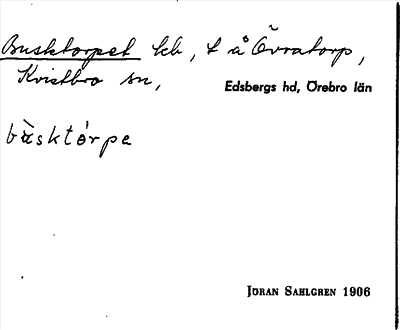 Busktorpet lh, t å Övratorp,
Kvistbro sn,
Edsbergs hd, Örebro län
bùsktórpe
JÖRAN SAHLGREN 1906